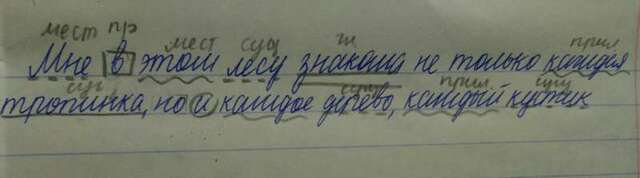 мест пр мест сущ гл прил
Мне в этом лесу знакома не только каждая
сущ сущ прил сущ
тропинка, но и каждое дерево, каждый кустик